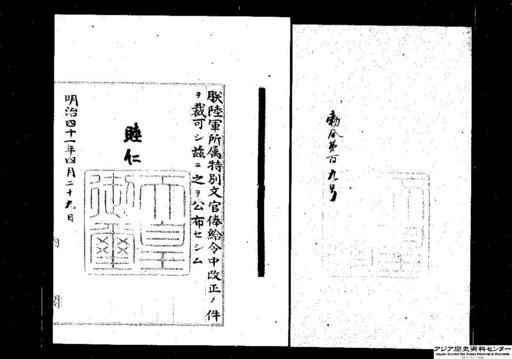 勅令第百九号
朕陸軍所属特別文官俸給令中改正ノ件
ヲ裁可シ茲ニ之ヲ公布セシム
睦仁
天皇御璽
明治四十一年四月二十九日
アジア歴史資料センター
Japan Center for Asian Historical Records